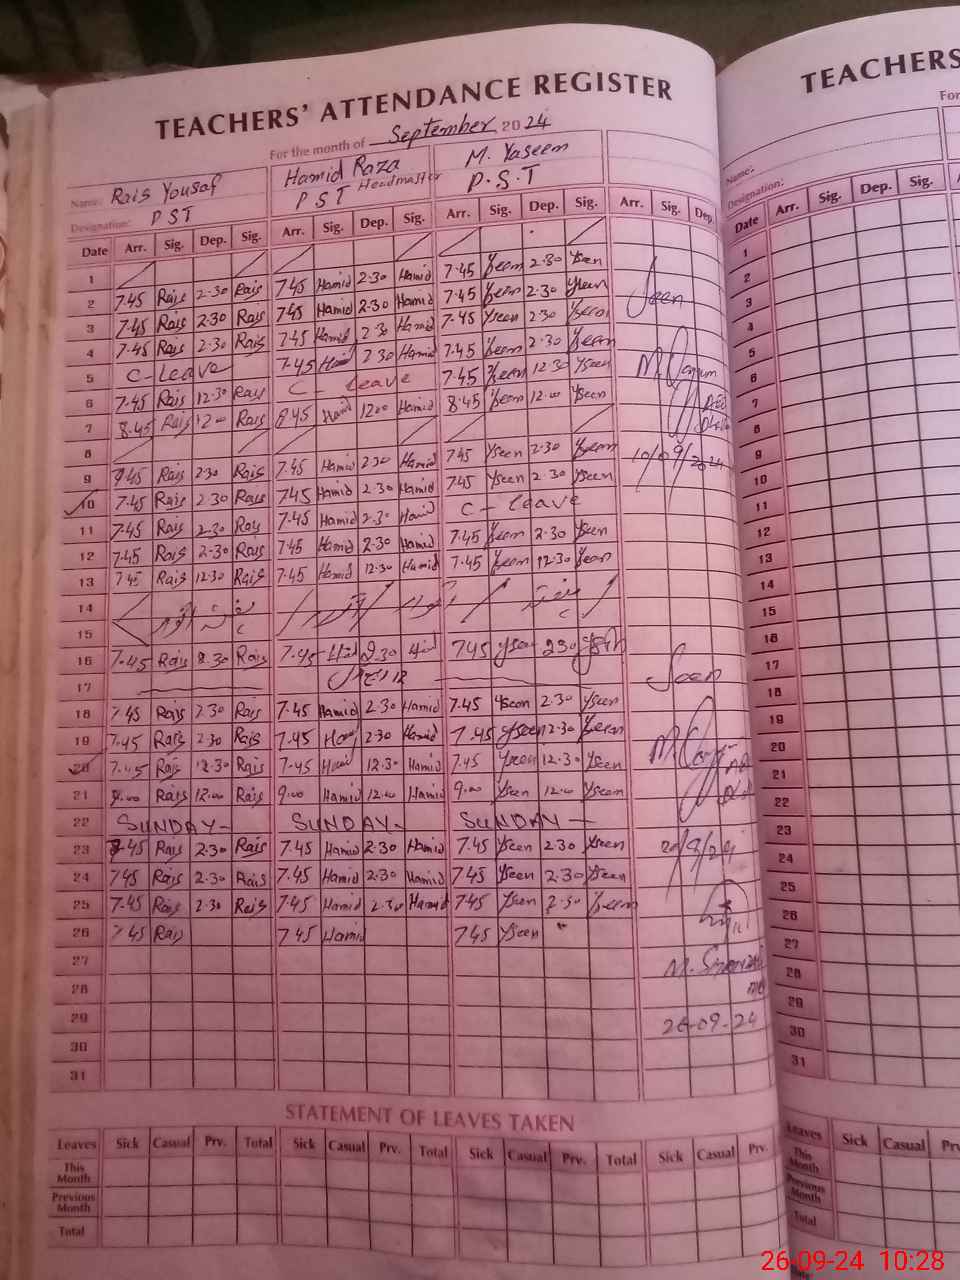 TEACHERS' ATTENDANCE REGISTER
For the month of September 2024
Name: Rais Yousaf Hamid Raza M. Yaseem
Designation: PST PST Headmaster P.S.T
Date Arr. Sig. Dep. Sig. Arr. Sig. Dep. Sig. Arr. Sig. Dep. Sig. Arr. Sig. Dep.
1
2 7.45 Rais 2.30 Rais 7.45 Hamid 2.30 Hamid 7.45 Yseen 2.30 Yseen
3 7.45 Rais 2.30 Rais 7.45 Hamid 2.30 Hamid 7.45 Yseen 2.30 Yseen Seen
4 7.45 Rais 2.30 Rais 7.45 Hamid 2.30 Hamid 7.45 Yseen 2.30 Yseen
5 C-Leave 7.45 2.30 Hamid 7.45 Yseen 2.30 Yseen
6 7.45 Rais 12.30 Rais C Leave 7.45 Yseen 12.30 Yseen
7 8.45 Rais 12.00 Rais 8.45 Hamid 12.00 Hamid 8.45 Yseen 12.00 Yseen
8
9 7.45 Rais 2.30 Rais 7.45 Hamid 2.30 Hamid 7.45 Yseen 2.30 Yseen
10 7.45 Rais 2.30 Rais 7.45 Hamid 2.30 Hamid 7.45 Yseen 2.30 Yseen
11 7.45 Rais 2.30 Rais 7.45 Hamid 2.30 Hamid C-Leave
12 7.45 Rais 2.30 Rais 7.45 Hamid 2.30 Hamid 7.45 Yseen 2.30 Yseen
13 7.45 Rais 12.30 Rais 7.45 Hamid 12.30 Hamid 7.45 Yseen 12.30 Yseen
14
15
16 7.45 Rais 2.30 Rais 7.45 2.30 7.45 Yseen 2.30
17 Seen
18 7.45 Rais 2.30 Rais 7.45 Hamid 2.30 Hamid 7.45 Yseen 2.30 Yseen
19 7.45 Rais 2.30 Rais 7.45 2.30 Hamid 7.45 Yseen 2.30 Yseen
20 7.45 Rais 12.30 Rais 7.45 12.30 Hamid 7.45 Yseen 12.30 Yseen
21 9.00 Rais 12.00 Rais 9.00 Hamid 12.00 Hamid 9.00 Yseen 12.00 Yseen
22 SUNDAY- SUNDAY- SUNDAY-
23 7.45 Rais 2.30 Rais 7.45 Hamid 2.30 Hamid 7.45 Yseen 2.30 Yseen
24 7.45 Rais 2.30 Rais 7.45 Hamid 2.30 Hamid 7.45 Yseen 2.30 Yseen
25 7.45 Rais 2.30 Rais 7.45 Hamid 2.30 Hamid 7.45 Yseen 2.30 Yseen
26 7.45 Rais 7.45 Hamid 7.45 Yseen
27
28
29 26-09-24
30
31
STATEMENT OF LEAVES TAKEN
Leaves Sick Casual Prv. Total Sick Casual Prv. Total Sick Casual Prv. Total Sick Casual Prv.
This Month
Previous Month
Total
TEACHERS
For
Name:
Designation:
Date Arr. Sig. Dep. Sig.
1
2
3
4
5
6
7
8
9
10
11
12
13
14
15
16
17
18
19
20
21
22
23
24
25
26
27
28
29
30
31
Leaves Sick Casual
This Month
Previous Month
Total
26-09-24 10:28